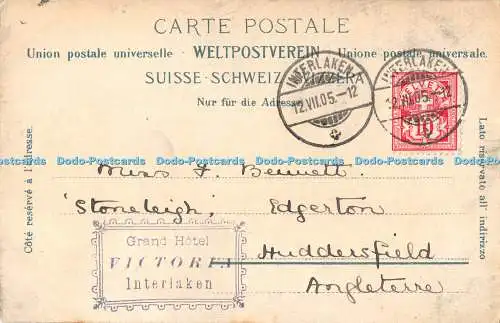 CARTE POSTALE
Union postale universelle. WELTPOSTVEREIN Unione postale universale.
SUISSE-SCHWEIZ-SVIZZERA
Nur für die Adresse
Côté reservé à l'adresse.
Lato riservato all' indirizzo
INTERLAKEN
12.VII.05.-12
INTERLAKEN
12.VII.05.-12
HELVETIA
10
Dodo-Postcards Dodo-Postcards Dodo-Postcards Dodo-Postcards Dodo-Postcards Dodo-Postcards
Miss F. Bennett
'Stoneleigh', Edgerton
Huddersfield
Angleterre
Grand Hôtel
VICTORIA
Interlaken